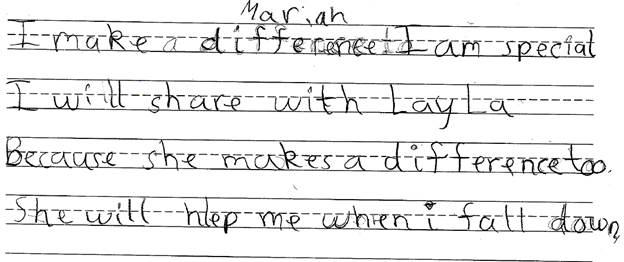 Mariah
I make a difference! I am special
I will share with LayLa
Because she makes a difference too.
She will hlep me when i fall down